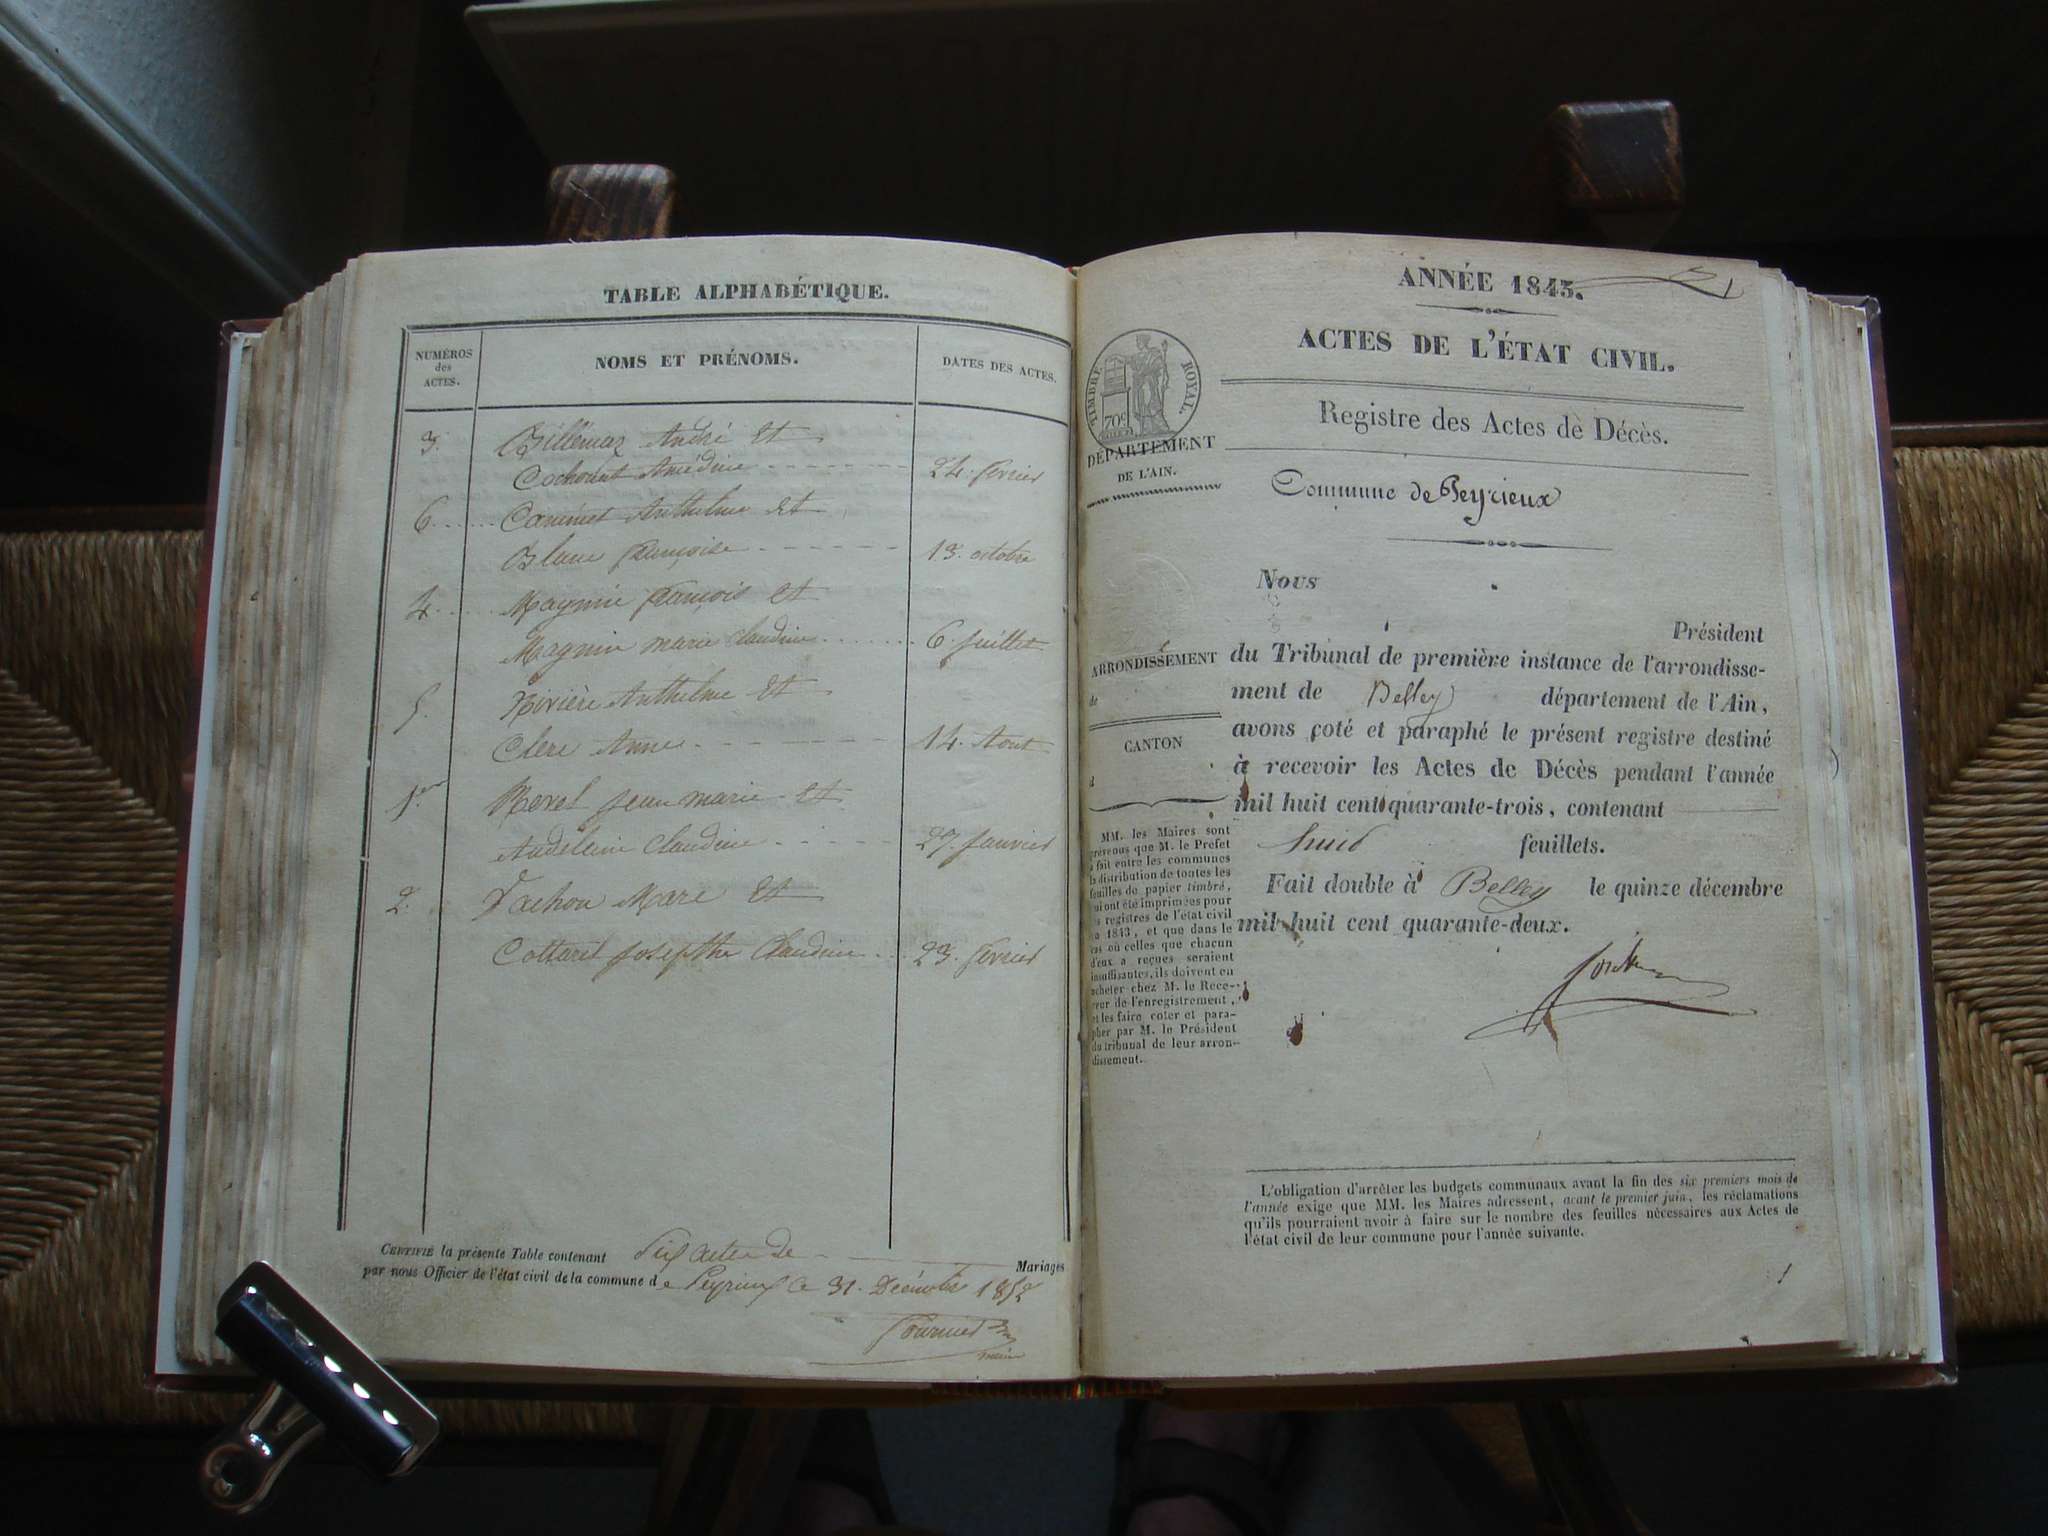 TABLE ALPHABÉTIQUE.
NUMÉROS
des
ACTES.
NOMS ET PRÉNOMS.
DATES DES ACTES.
3. Billemaz André Et
Amédine 24. fevrier
6. Anthelme Et
Blanc françoise 13. octobre
4. Magnin françois Et
Magnin marie claudine 6. Juillet
5. Rivière Anthelme Et
Clerc Anne 14. Aout
1er Revel jean marie Et
Claudine 27. Janvier
2. Vachou Marc Et
Cottarel josephte Claudine 23. fevrier
CERTIFIÉ la présente Table contenant Six actes de Mariages
par nous Officier de l'état civil de la commune de Peyrieux ce 31. Décembre
ANNÉE 1843.
ACTES DE L'ÉTAT CIVIL.
TIMBRE ROYAL.
70c
DÉPARTEMENT
DE L'AIN.
Registre des Actes de Décès.
Commune de Peyrieux
Nous
Président
ARRONDISSEMENT
de
CANTON
d
du Tribunal de première instance de l'arrondisse-
ment de Belley département de l'Ain,
avons coté et paraphé le présent registre destiné
à recevoir les Actes de Décès pendant l'année
mil huit cent quarante-trois, contenant
huit feuillets.
Fait double à Belley le quinze décembre
mil huit cent quarante-deux.
MM. les Maires sont
prévenus que M. le Préfet
a fait entre les communes
la distribution de toutes les
feuilles de papier timbré,
qui ont été imprimées pour
les registres de l'état civil
de 1843, et que dans le
cas où celles que chacun
d'eux a reçues seraient
insuffisantes, ils doivent en
acheter chez M. le Rece-
veur de l'enregistrement,
et les faire coter et para-
pher par M. le Président
du tribunal de leur arron-
dissement.
L'obligation d'arrêter les budgets communaux avant la fin des six premiers mois de
l'année exige que MM. les Maires adressent, avant le premier juin, les réclamations
qu'ils pourraient avoir à faire sur le nombre des feuilles nécessaires aux Actes de
l'état civil de leur commune pour l'année suivante.